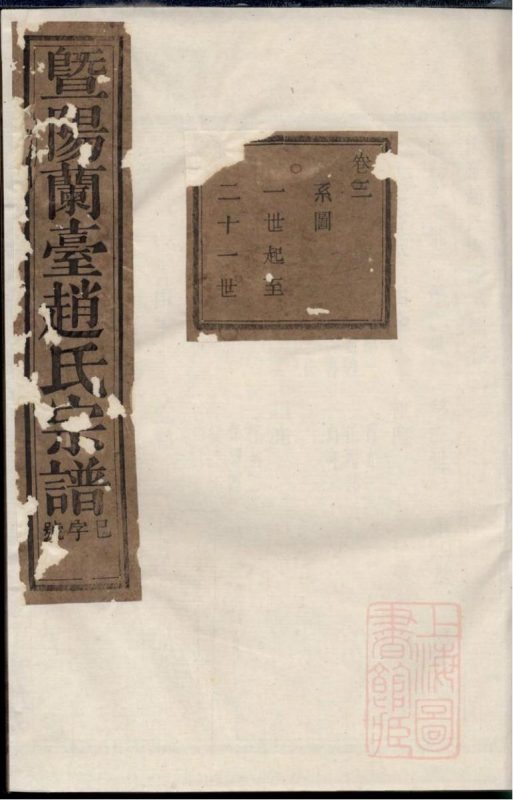 暨陽蘭臺趙氏宗譜
巳字號
卷三
系圖
一世起至
二十一世
上海圖
書館藏